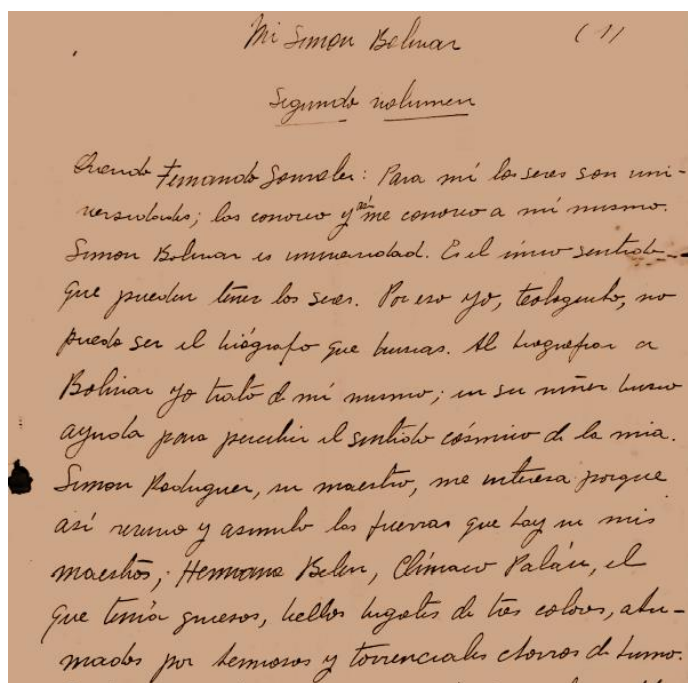 Mi Simon Bolivar (1)
Segundo volumen
Querido Fernando Gonzalez: Para mí los seres son uni-
versidades; los conozco y así me conozco a mí mismo.
Simon Bolivar es universidad. Es el único sentido
que pueden tener los seres. Por eso yo, teologento, no
puedo ser el biógrafo que buscas. Al biografiar a
Bolivar yo trato de mí mismo; en su niñez busco
ayuda para percibir el sentido cósmico de la mia.
Simon Rodriguez, su maestro, me interesa porque
así reuno y asimilo las fuerzas que hay en mis
maestros; Hermana Belen, Clímaco Paláu, el
que tenía gruesos, bellos bigotes de tres colores, ahu-
mados por hermosos y torrenciales chorros de humo.